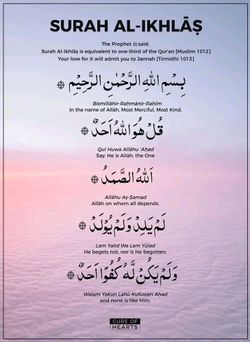 SURAH AL-IKHLĀṢ
The Prophet ﷺ said:
Surah Al-Ikhlāṣ is equivalent to one-third of the Qur'an [Muslim 1012]
Your love for it will admit you to Jannah [Tirmidhi 1013]
بِسْمِ اللهِ الرَّحْمٰنِ الرَّحِيْمِ
Bismillāhir-Raḥmānir-Raḥīm
In the name of Allāh, Most Merciful, Most Kind.
قُلْ هُوَ اللهُ اَحَدٌ
Qul Huwa Allāhu 'Aḥad
Say: He is Allāh, the One
اَللهُ الصَّمَدُ
Allāhu Aṣ-Ṣamad
Allāh on whom all depends.
لَمْ يَلِدْ وَلَمْ يُوْلَدْ
Lam Yalid Wa Lam Yūlad
He begets not, nor is He begotten.
وَلَمْ يَكُنْ لَّهٗ كُفُوًا اَحَدٌ
Walam Yakun Lahū Kufuwan Aḥad
and none is like Him.
CURE OF
HEARTS